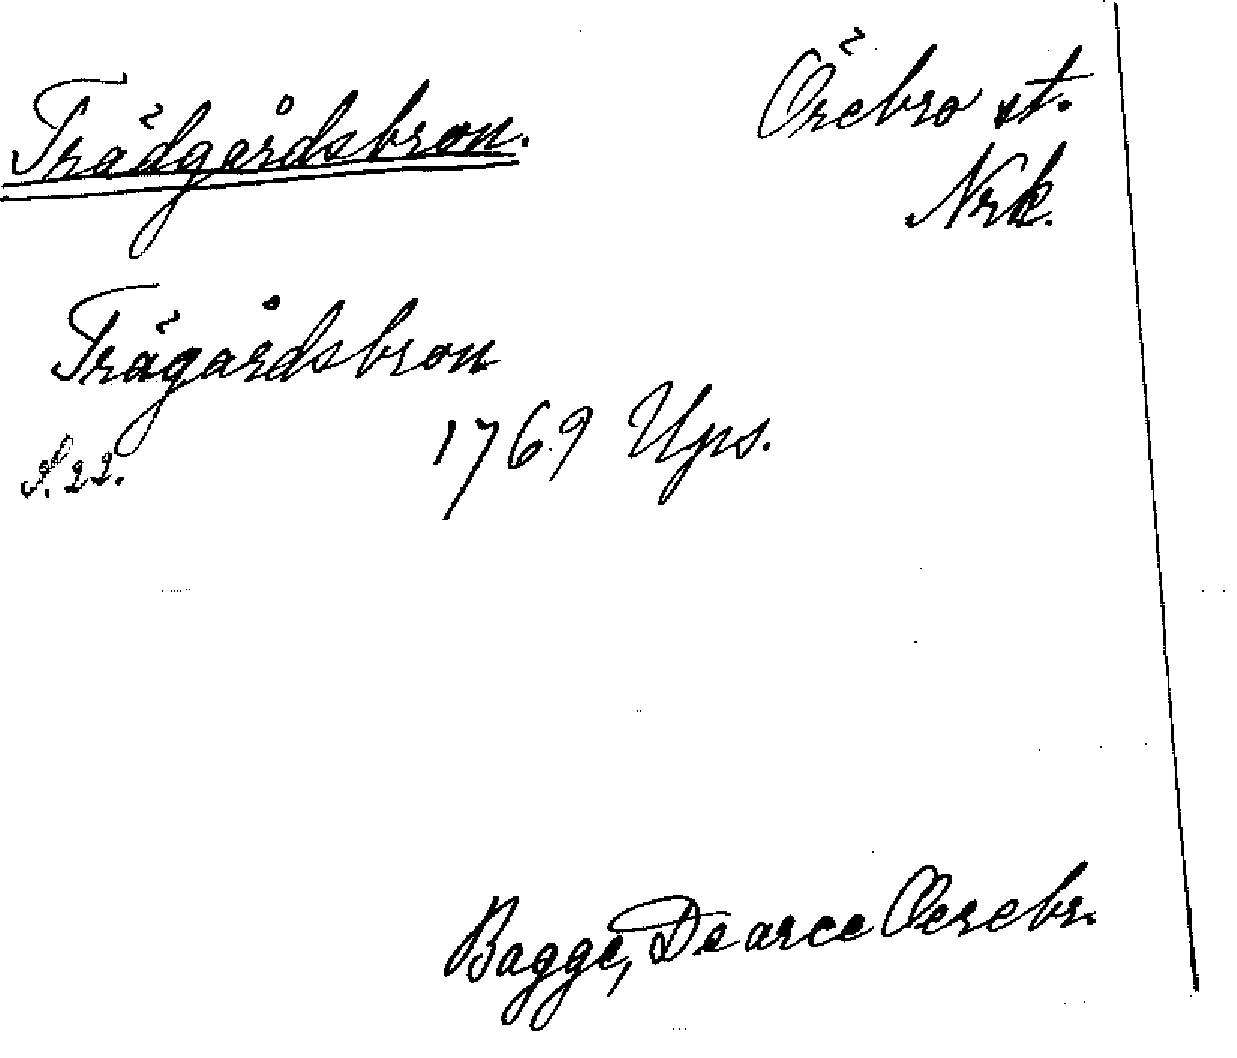 Trädgårdsbron.
Örebro st.
Nrk.
Trägårdsbron
1769 Ups.
S. 22.
Bagge, De arce Oerebr.